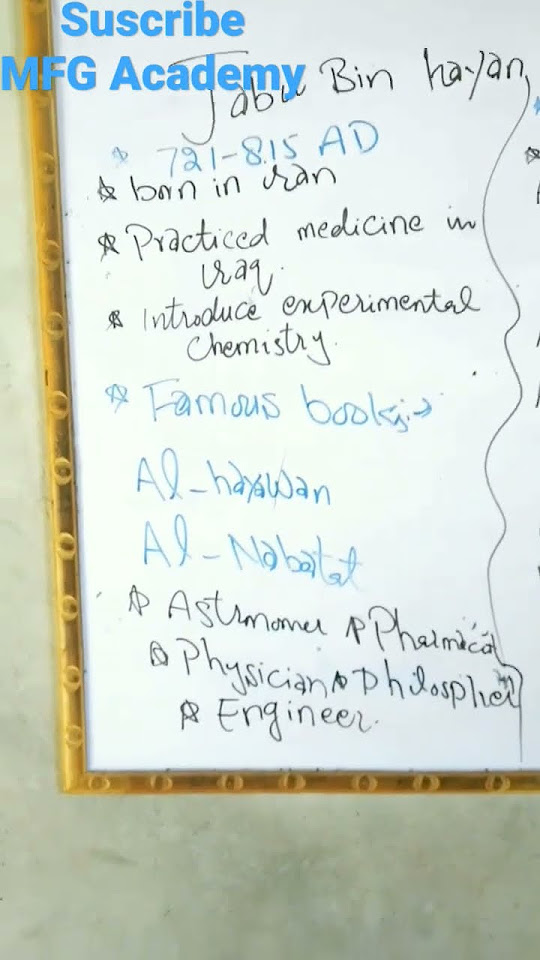 Suscribe
MFG Academy
Jabir Bin hayan
* 721-815 AD
* born in iran
* Practiced medicine in
iraq.
* Introduce experimental
Chemistry.
* Famous books:→
Al-hayawan
Al-Nabatat
* Astronomer * Pharmicist
* Physician * Philospher
* Engineer.